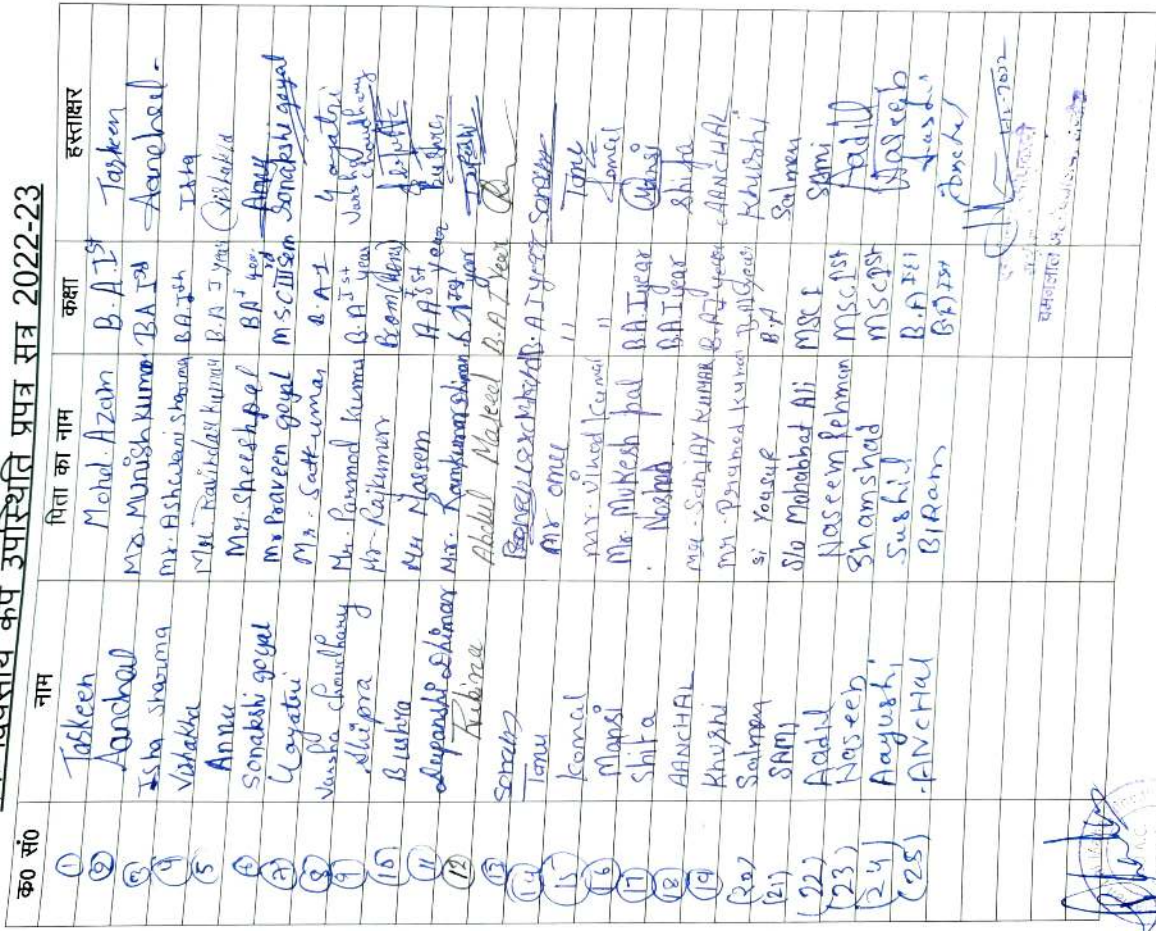 दिवसीय कैंप उपस्थिति प्रपत्र सत्र 2022-23
क० सं० नाम पिता का नाम कक्षा हस्ताक्षर
① Taskeen Mohd. Azam B.A.Ist Taskeen
② Aanchal Mr. Munish Kumar BA Ist Aanchal
③ Isha Sharma Mr. Ashwani Sharma BA.Ist Isha
④ Vishakha Mr. Ravindar Kumar B.A I year Vishakha
⑤ Annu Mr. Sheeshpal BA Annu
⑥ Sonakshi goyal Mr Praveen goyal M.SC III Sem Sonakshi goyal
⑦ Gayatri Mr. Satkumar B.A-1 Gayatri
⑧ Varsha Choudhary Mr. Parmod Kumar B.A Ist year Varsha Choudhary
⑨ Shipra Mr. Rajkumar Bcom(Hons)
⑩ Bushra Mr Naseem B.A Ist year Bushra
⑪ Depanshi Dhiman Mr. Ramkumar Dhiman B.A Ist year
⑫ Rubina Abdul Majeed B.A I Year
⑬ Sonam B.A I year Sonam
⑭ Tanu Mr Omu " Tanu
⑮ Komal Mr. Vinod Kumar " Komal
⑯ Mansi Mr. Mukesh pal B.A I year Mansi
⑰ Shifa Noshad B.A I year Shifa
⑱ AANCHAL Mr. SANJAY KUMAR B.A I year AANCHAL
⑲ Khushi Mr. Pramod Kumar B.A I year Khushi
(20) Salman Yousuf B.A Salman
(21) SAMI S/o Mohabbat Ali MSC I SAMI
(22) Aadil Naseem Rehman MSC Ist Aadil
(23) Naseeb Shamshad MSC Ist Naseeb
(24) Aayushi Sushil B.A Ist
(25) ANCHAL BIRam B.A Ist